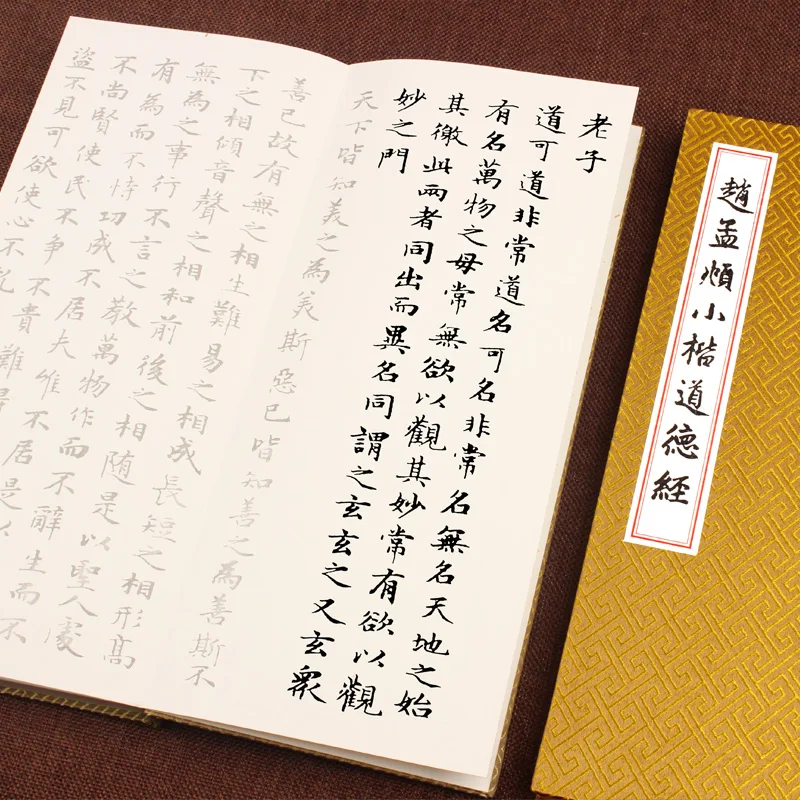 老子
道可道非常道名可名非常名無名天地之始
有名萬物之母常無欲以觀其妙常有欲以觀
其徼此兩者同出而異名同謂之玄玄之又玄衆
妙之門
天下皆知美之為美斯惡已皆知善之為善斯不
善已故有無之相生難易之相成長短之相形高
下之相傾音聲之相和前後之相随是以聖人處
無為之事行不言之教萬物作而不辭生而不
有為而不恃功成不居夫唯不居是以
不尚賢使民不争不貴難
盜不見可欲使心不
趙孟頫小楷道德經